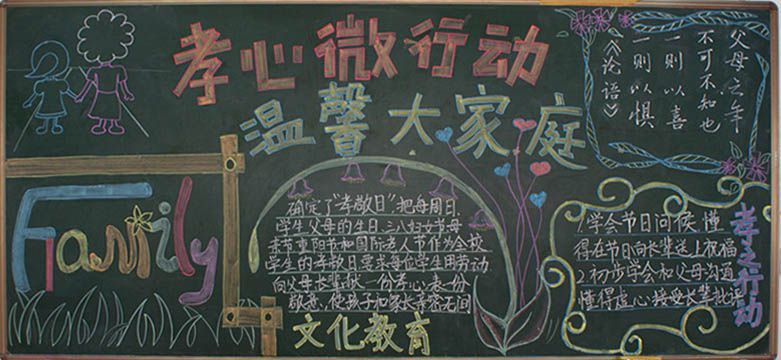 孝心微行动
温馨大家庭
父母之年
不可不知也
一则以喜
一则以惧
《论语》
Family
确定了“孝敬日”把每周日、
学生父母的生日、三八妇女节母
亲节重阳节和国际老人节作为全校
学生的孝敬日要求每位学生用劳动
向父母长辈献一份孝心、表份
敬意、使孩子和家长亲密无间
文化教育
1.学会节日问候,懂
得在节日向长辈送上祝福
2.初步学会和父母沟通
懂得虚心接受长辈批评
孝之行动